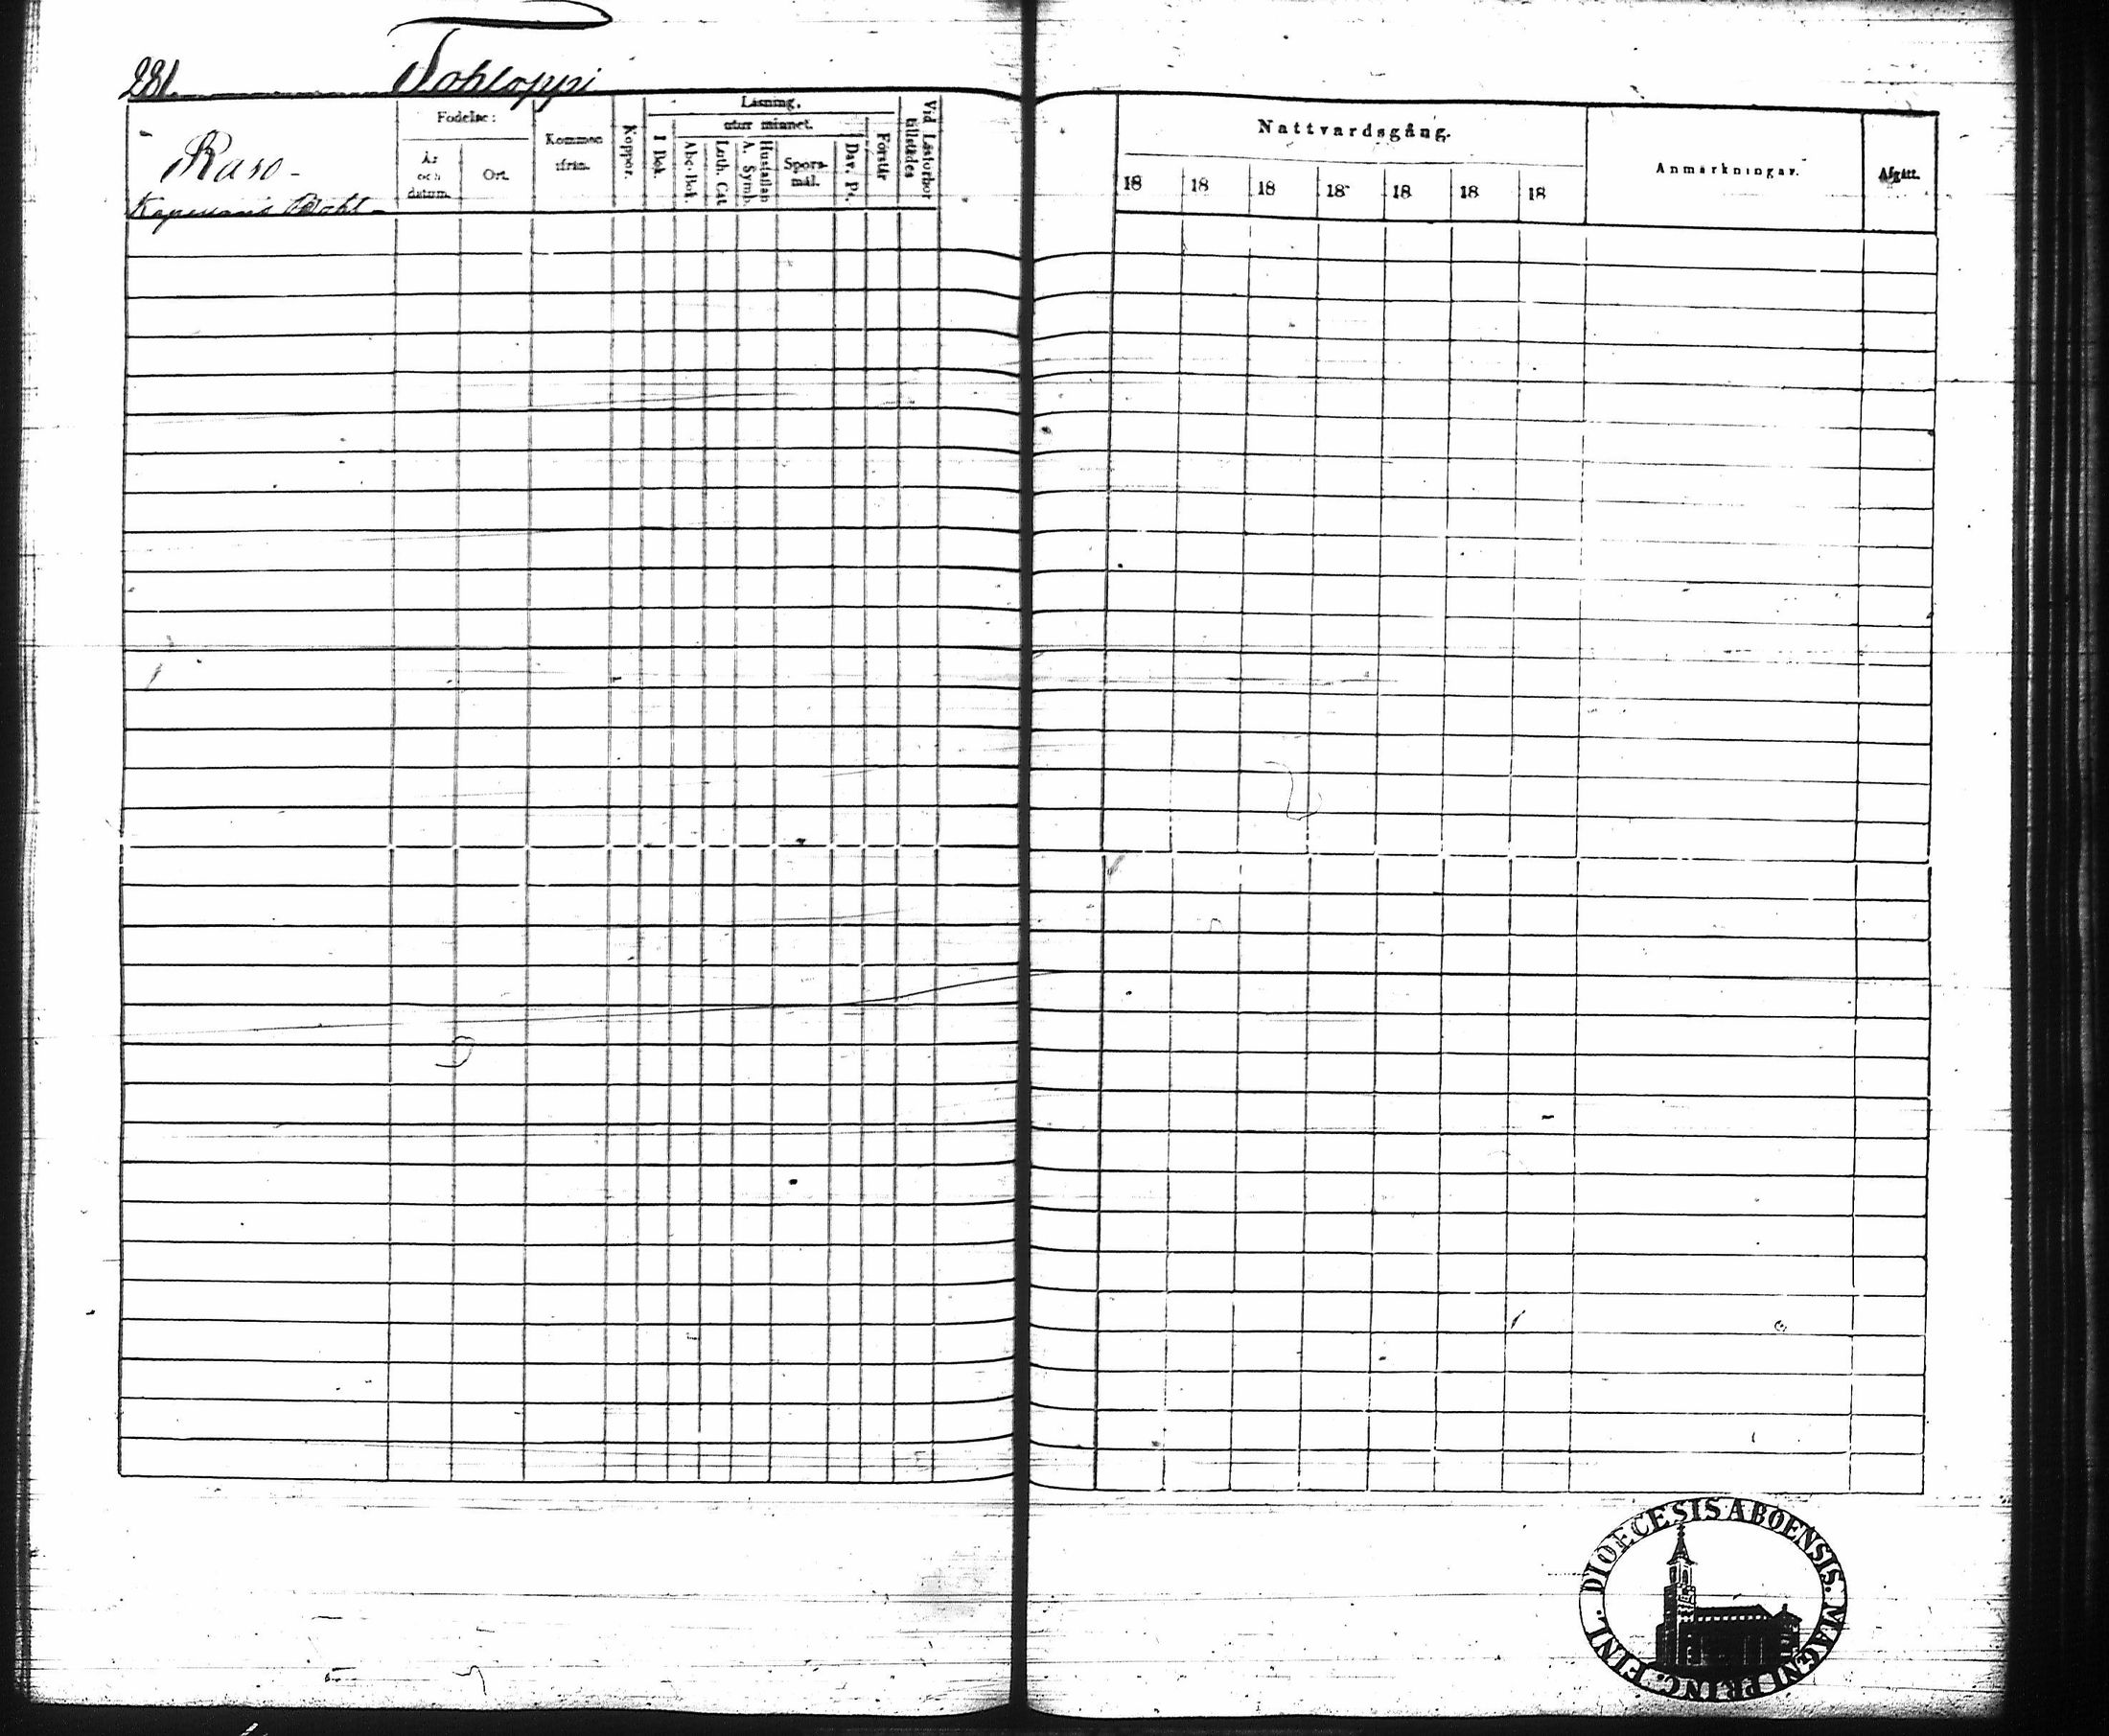 281. Tohloppi
Raso-
Bohl-
Födelse:
År
och
datum.
Ort.
Kommen
ifrån.
Koppor.
Läsning.
utur minnet.
I Bok.
Abc-Bok.
Luth. Cat.
Hustaflan
A. Symb.
Spörs-
mål.
Dav. Ps.
Förstår
Vid Läsförhör
tillstädes
Nattvardsgång.
18 18 18 18 18 18 18
Anmärkningar.
Afgått.
DIOECESIS ABOENSIS. MAGNI PRINC. FINL.